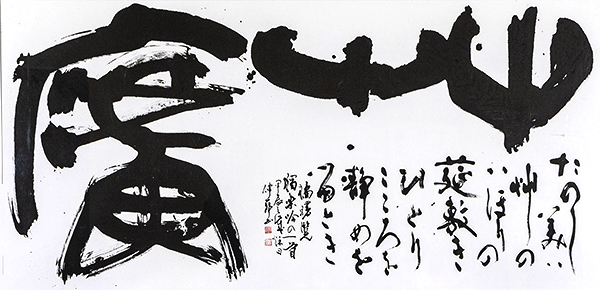 艸廣
たのし美ハ
艸の
いほりの
莚敷き
ひとり
こころを
静めを
るとき
橘曙覧
獨楽吟の一首